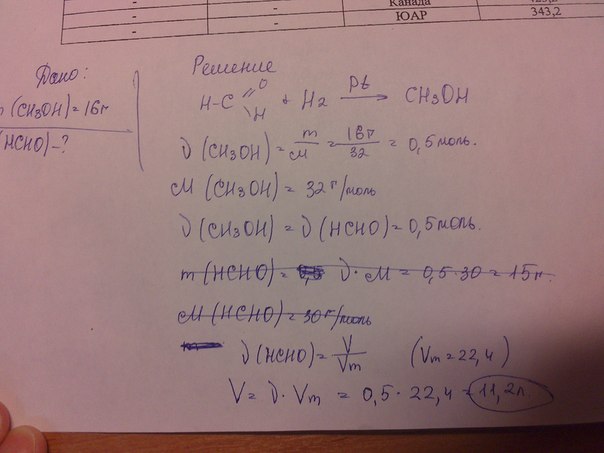 Канада
ЮАР 343,2
Дано:
m (CH3OH) = 16г
(HCHO) - ?
Решение
H-C O H + H2 Pt → CH3OH
ν (CH3OH) = m/M = 16г/32 = 0,5 моль.
M (CH3OH) = 32 г/моль
ν (CH3OH) = ν (HCHO) = 0,5 моль.
m (HCHO) = ν · M = 0,5 · 30 = 15 г.
M (HCHO) = 30 г/моль
ν (HCHO) = V/Vm (Vm = 22,4)
V = ν · Vm = 0,5 · 22,4 = 11,2л.